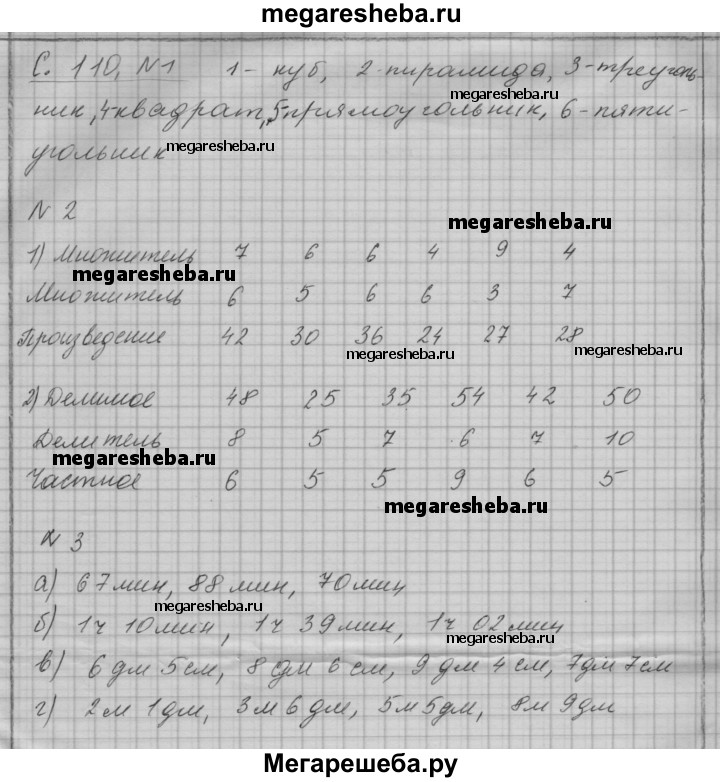 megaresheba.ru
С. 110, №1 1- куб, 2-пирамида, 3-треуголь-
megaresheba.ru
ник, 4квадрат, 5-прямоугольник, 6-пяти-
угольник megaresheba.ru
megaresheba.ru
№ 2
megaresheba.ru
1) Множитель 7 6 6 4 9 4
megaresheba.ru
Множитель 6 5 6 6 3 7
Произведение 42 30 36 24 27 28
megaresheba.ru megaresheba.ru
2) Делимое 48 25 35 54 42 50
Делитель 8 5 7 6 7 10
megaresheba.ru
Частное 6 5 5 9 6 5
megaresheba.ru
№ 3
а) 67мин, 88мин, 70мин
megaresheba.ru
б) 1ч 10мин, 1ч 39мин, 1ч 02мин
megaresheba.ru
в) 6дм 5см, 8дм 6см, 9дм 4см, 7дм 7см
г) 2м 1дм, 3м 6дм, 5м 5дм, 8м 9дм
Мегарешеба.ру